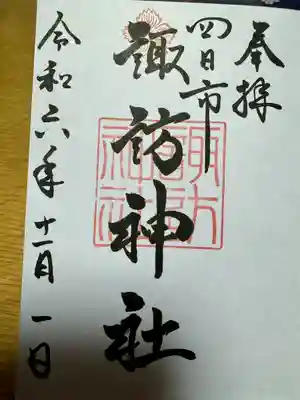 奉拝
四日市
諏訪神社
令和六年十一月一日
諏訪神社